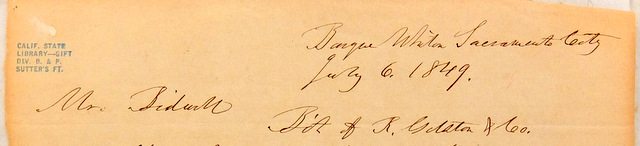 CALIF. STATE
LIBRARY—GIFT
DIV. B. & P.
SUTTER'S FT.
Barque Whiton Sacramento City
July 6. 1849.
Mr. Bidwell
Bot of R. Gelston & Co.